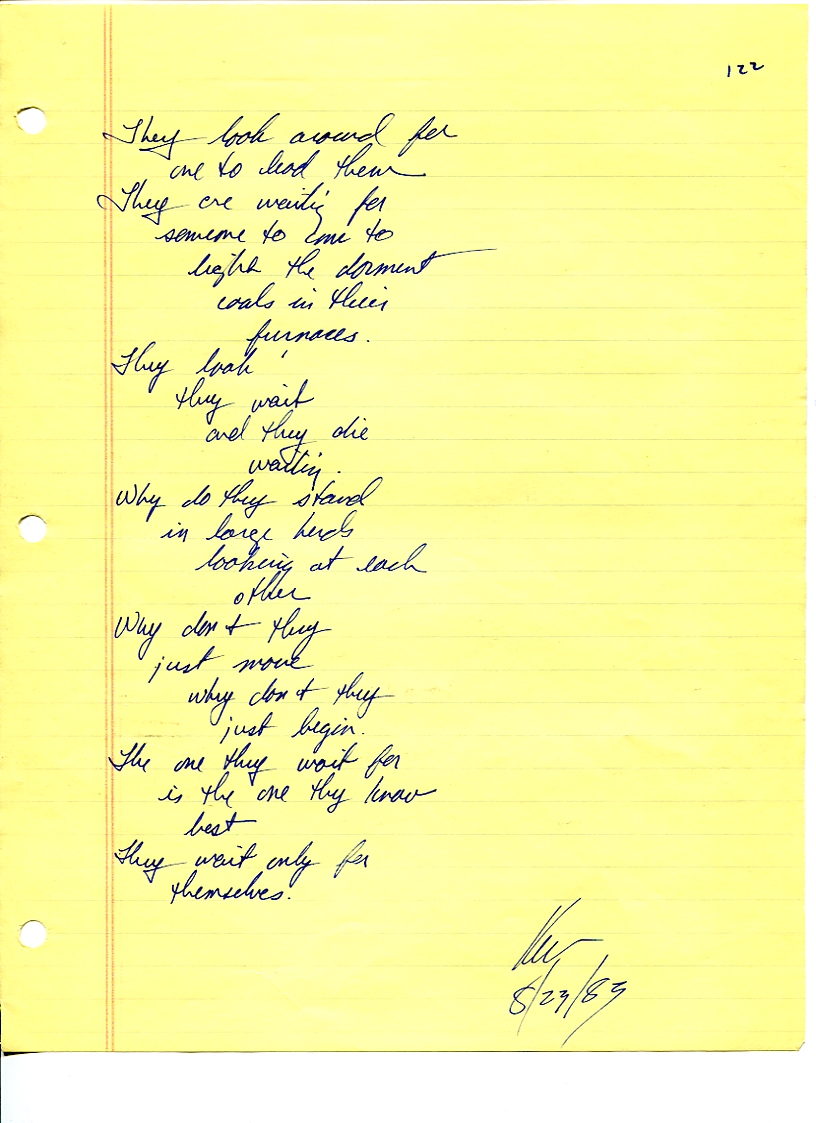 122
They look around for
one to lead them
They are waiting for
someone to come to
light the dorment
coals in their
furnaces.
They look
they wait
and they die
waiting.
Why do they stand
in large herds
looking at each
other
Why don't they
just move
why don't they
just begin.
The one they wait for
is the one they know
best
They wait only for
themselves.
8/23/83